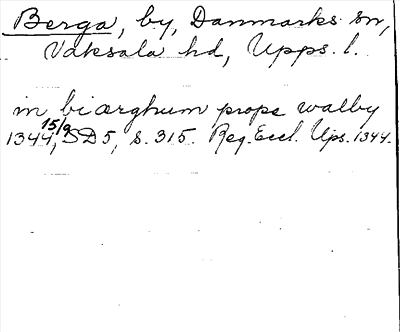 Berga, by, Danmarks sn,
Vaksala hd, Upps. l.
in biærghum prope walby
1344 15/9, SD 5, s. 315. Reg. Eccl. Ups. 1344.